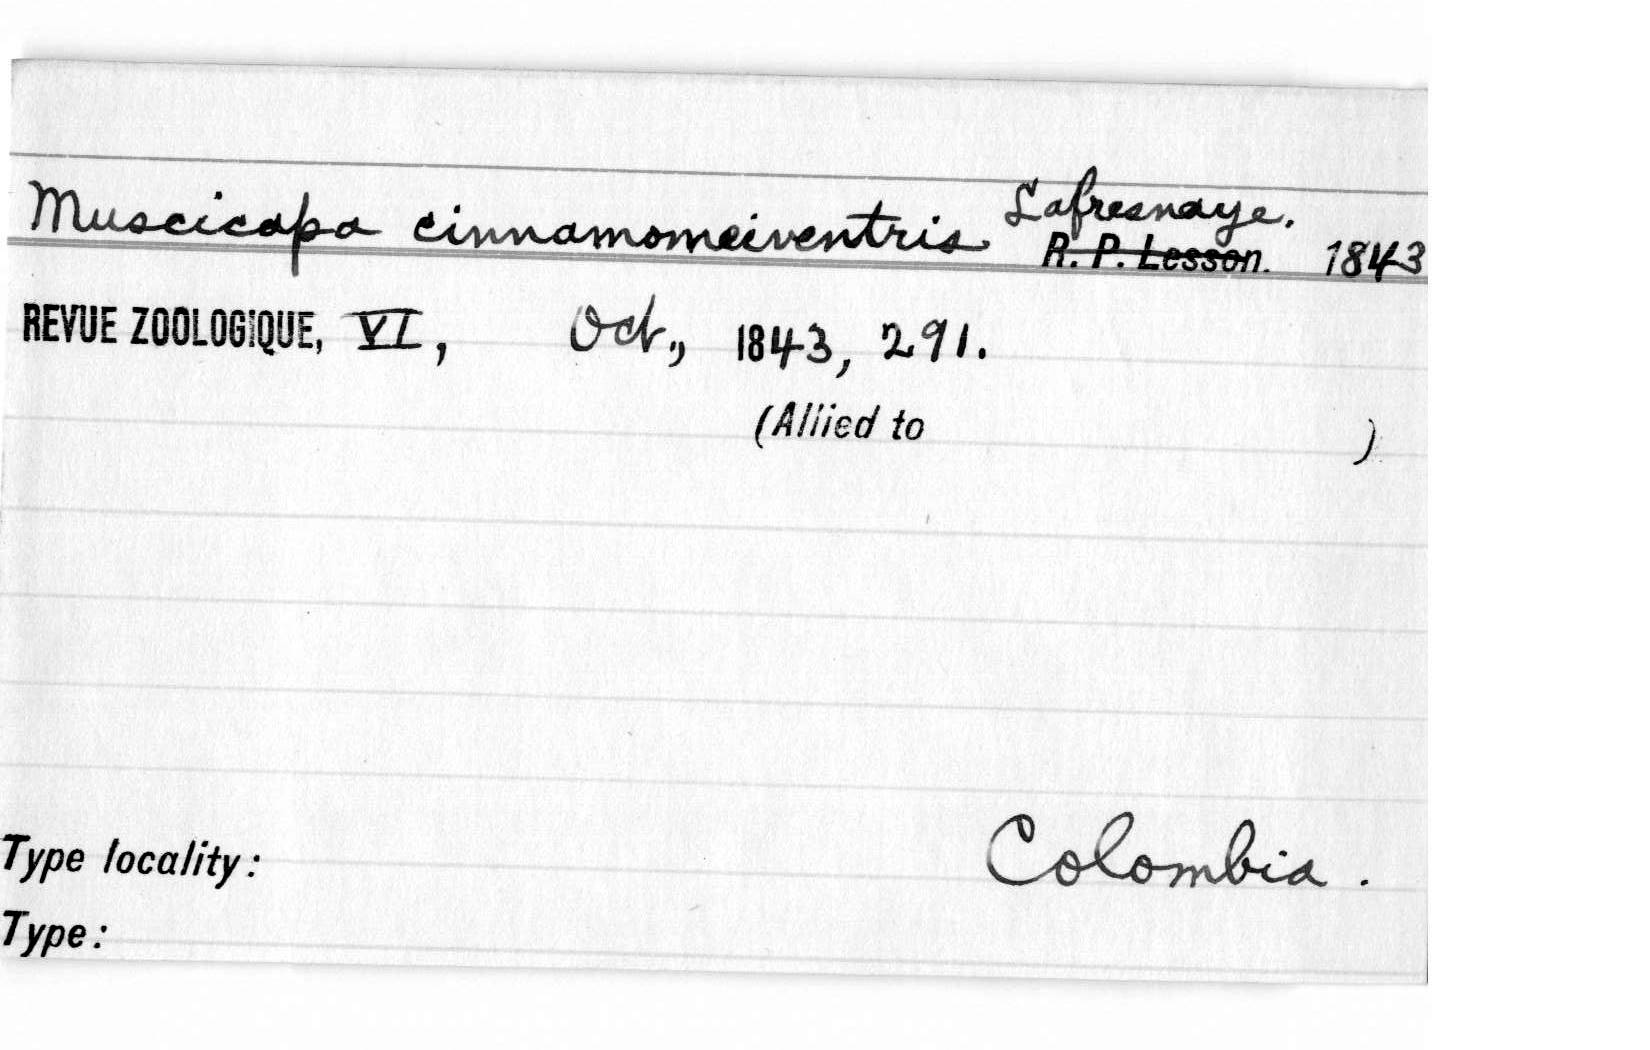 Muscicapa cinnamomeiventris Lafresnaye.
R. P. Lesson. 1843
REVUE ZOOLOGIQUE, VI, Oct., 1843, 291.
(Allied to )
Type locality: Colombia.
Type: